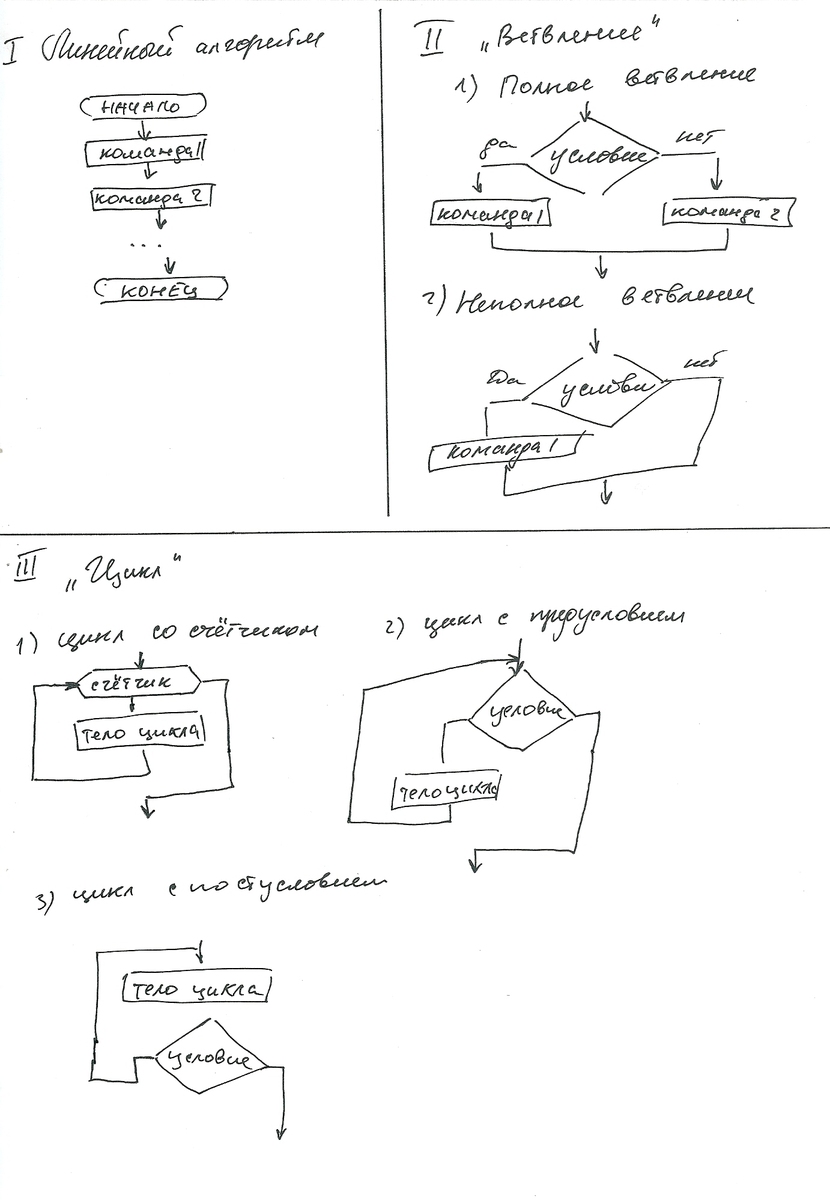 I Линейный алгоритм
НАЧАЛО
команда 1
команда 2
...
КОНЕЦ
II „Ветвление"
1) Полное ветвление
да
условие
нет
команда 1
команда 2
2) Неполное ветвление
Да
услови
нет
команда 1
III „Цикл"
1) цикл со счётчиком
счётчик
тело цикла
2) цикл с предусловием
условие
тело цикла
3) цикл с постусловием
тело цикла
условие